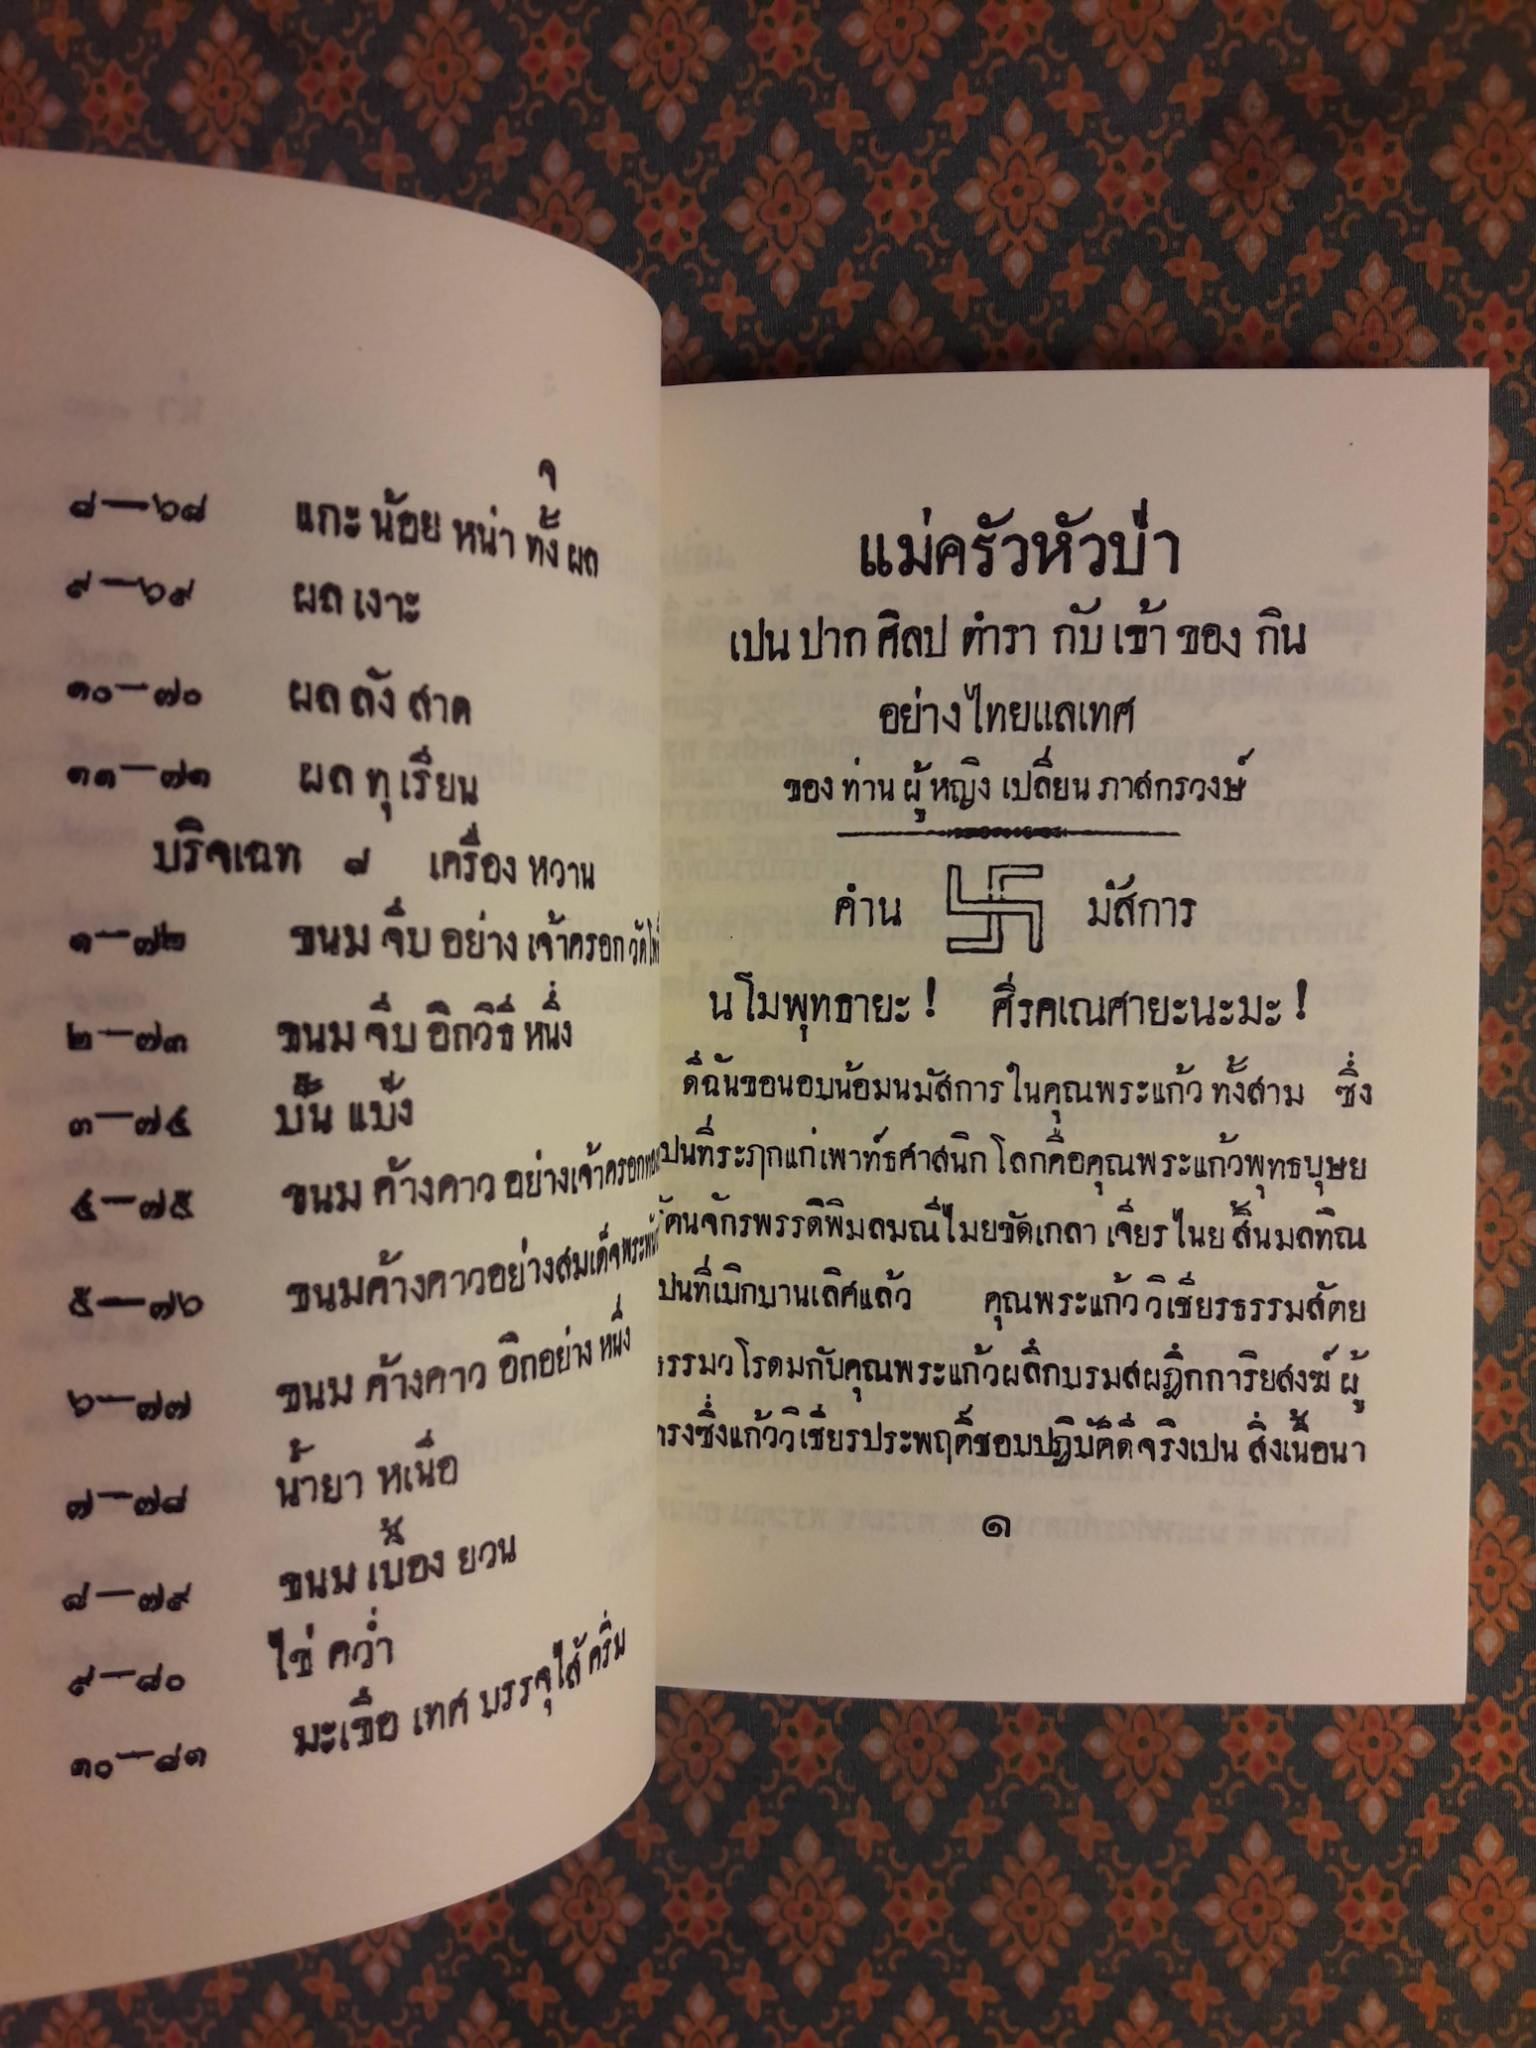 จ
๘—๖๘ แกะ น้อย หน่า ทั้ง ผล
๙—๖๙ ผล เงาะ
๑๐—๗๐ ผล ลัง สาด
๑๑—๗๑ ผล ทุ เรียน
บริจเฉท ๘ เครื่อง หวาน
๑—๗๒ ขนม จีบ อย่าง เจ้าครอก วัดโพ
๒—๗๓ ขนม จีบ อีกวิธี หนึ่ง
๓—๗๔ ปั้น แป้ง
๔—๗๕ ขนม ค้างคาว อย่างเจ้าครอก
๕—๗๖ ขนมค้างคาวอย่างสมเด็จพระพัน
๖—๗๗ ขนม ค้างคาว อีกอย่าง หนึ่ง
๗—๗๘ น้ำยา หเนือ
๘—๗๙ ขนม เบื้อง ยวน
๙—๘๐ ไข่ คว่ำ
๑๐—๘๑ มะเขือ เทศ บรรจุไส้ ครีม
แม่ครัวหัวป่า
เปน ปาก ศิลป ตำรา กับ เข้า ของ กิน
อย่างไทยแลเทศ
ของ ท่าน ผู้ หญิง เปลี่ยน ภาสกรวงษ์
คำน 卐 มัสการ
นโมพุทธายะ! ศิ่รคเณศายะนะมะ!
ดิฉันขอนอบน้อมนมัสการในคุณพระแก้ว ทั้งสาม ซึ่ง
ปนที่ระฦกแก่เพาท์ธศาสนิกโลกคือคุณพระแก้วพุทธบุษย
รัตนจักรพรรดิพิมลมณีไมยขัดเกลา เจียรไนย สิ้นมลทิณ
ปนที่เบิกบานเลิศแล้ว คุณพระแก้ววิเชียรธรรมสัตย
ธรรมวโรดมกับคุณพระแก้วผลึกบรมสผฎิกการิยสงฆ์ ผู้
ทรงซึ่งแก้ววิเชียรประพฤติ์ชอบปฏิบัติดีจริงเปน สิ่งเนื้อนา
๑